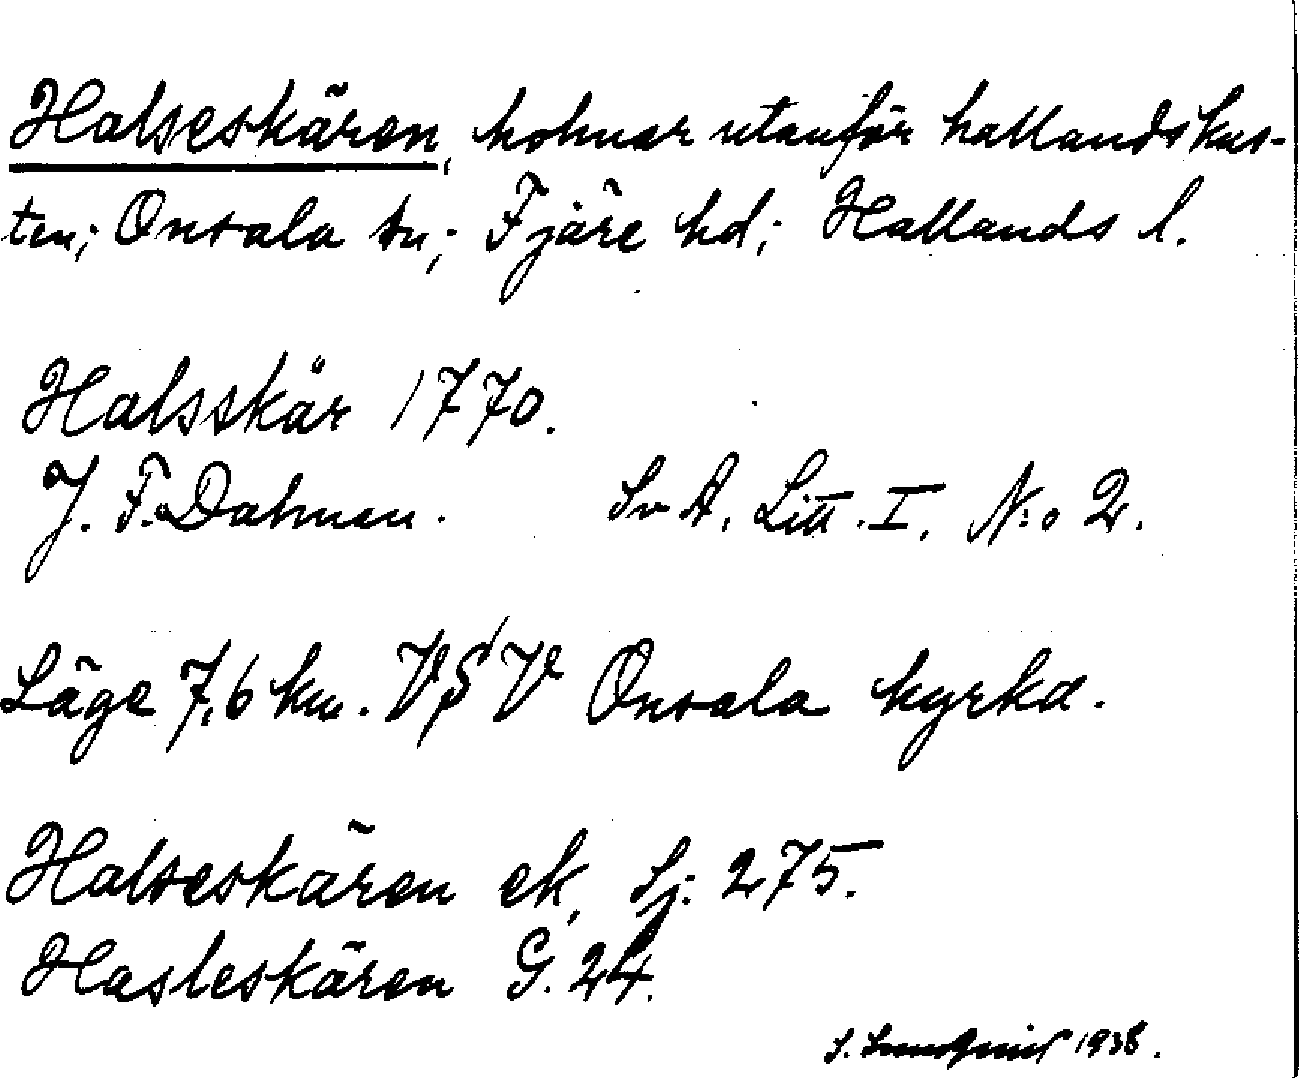 Halseskären, holmar utanför hallandskus-
ten; Onsala sn; Fjäre hd; Hallands l.
Halsskår 1770.
J. F. Dahman. Sv A. Litt. I. N:o 2.
Läge 7,6 km. VSV Onsala kyrka.
Halseskären ek, Sj: 275.
Hasleskären G. 24.
S. 1938.